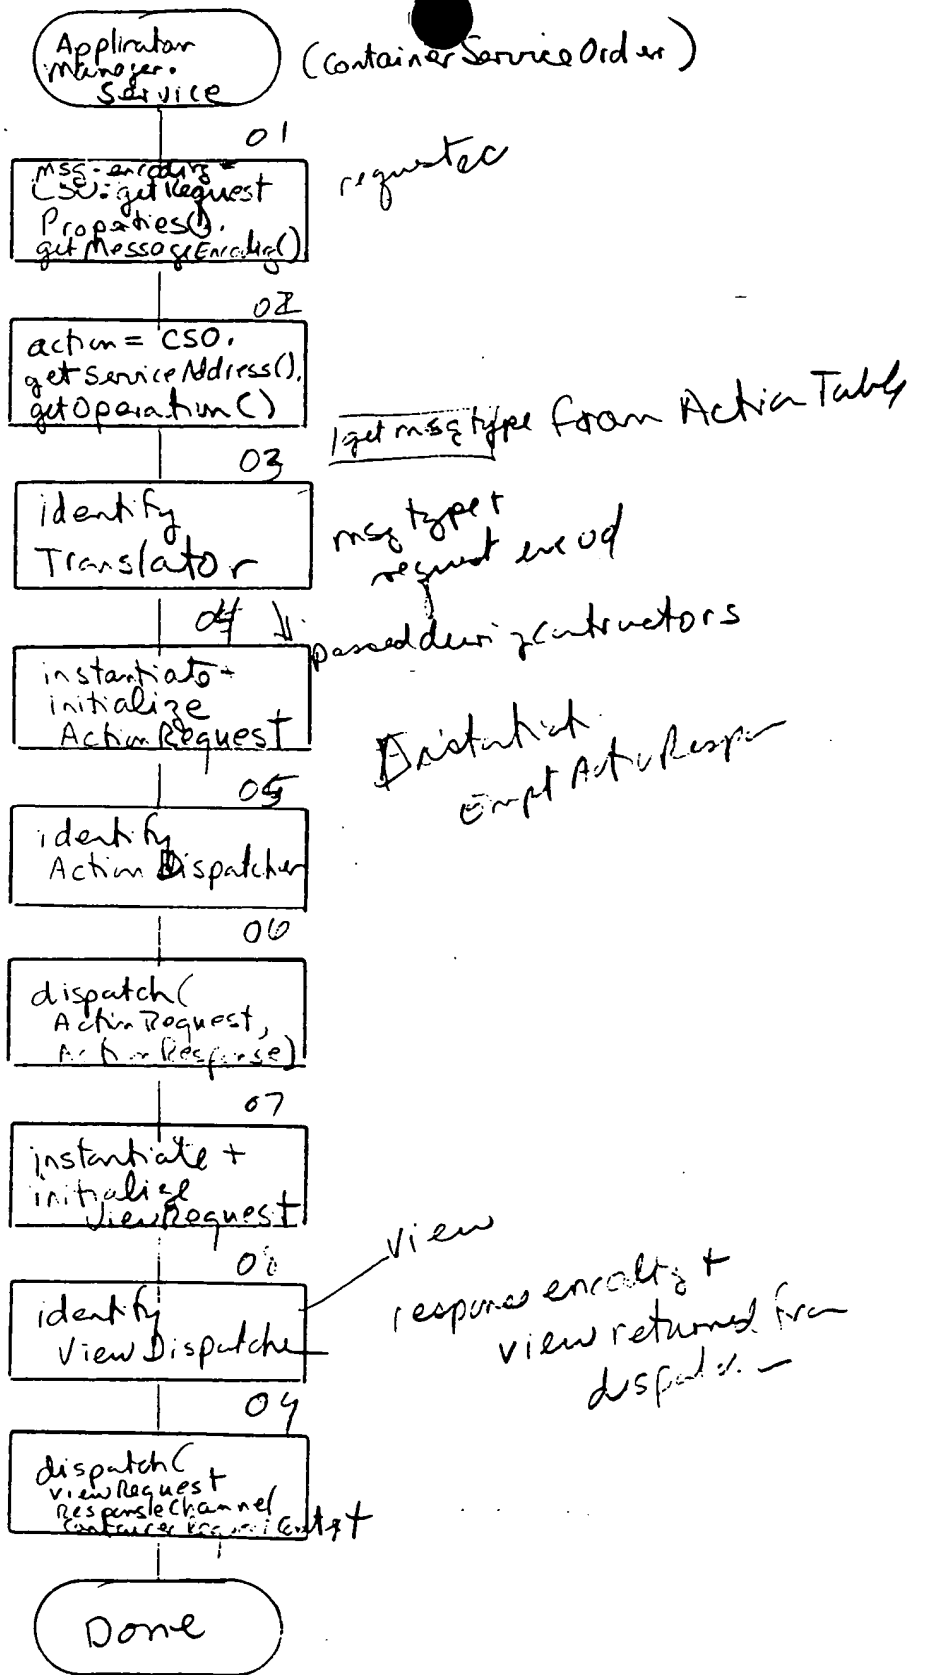 Application
Manager.
Service
(ContainerServiceOrder)
01
msg-encoding =
CSO.getRequest
Properties().
getMessageEncoding()
02
action = CSO.
getServiceAddress().
getOperation()
get msg type from Action Table
03
identify
Translator
msg type +
request
04
passed during constructors
instantiate +
initialize
ActionRequest
Instantiate
05
identify
Action Dispatcher
06
dispatch(
Action Request,
Action Response)
07
instantiate +
initialize
ViewRequest
view
identify
View Dispatcher
response encoding +
view returned from
09
dispatch(
viewRequest
ResponseChannel
Done